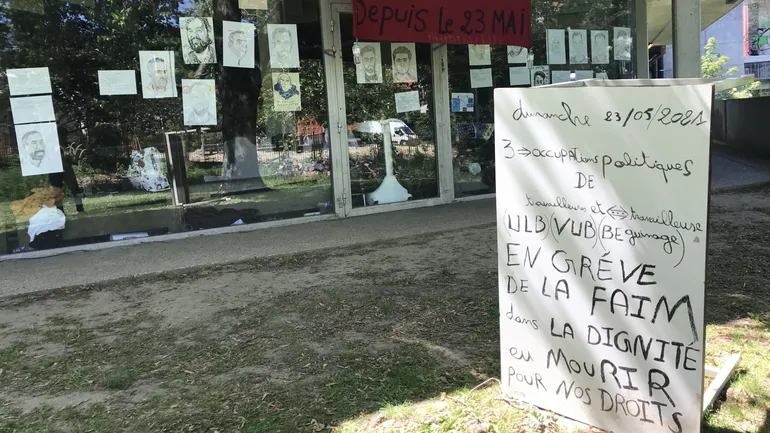 Depuis le 23 MAI
dimanche 23/05/2021
3 ⇒ occupations politiques
DE
travailleurs et ⇔ travailleuse
(ULB)(VUB)(BEguinage)
EN GRÉVE
DE LA FAIM
dans LA DIGNITÉ
ou MOURIR
POUR NOS DROITS